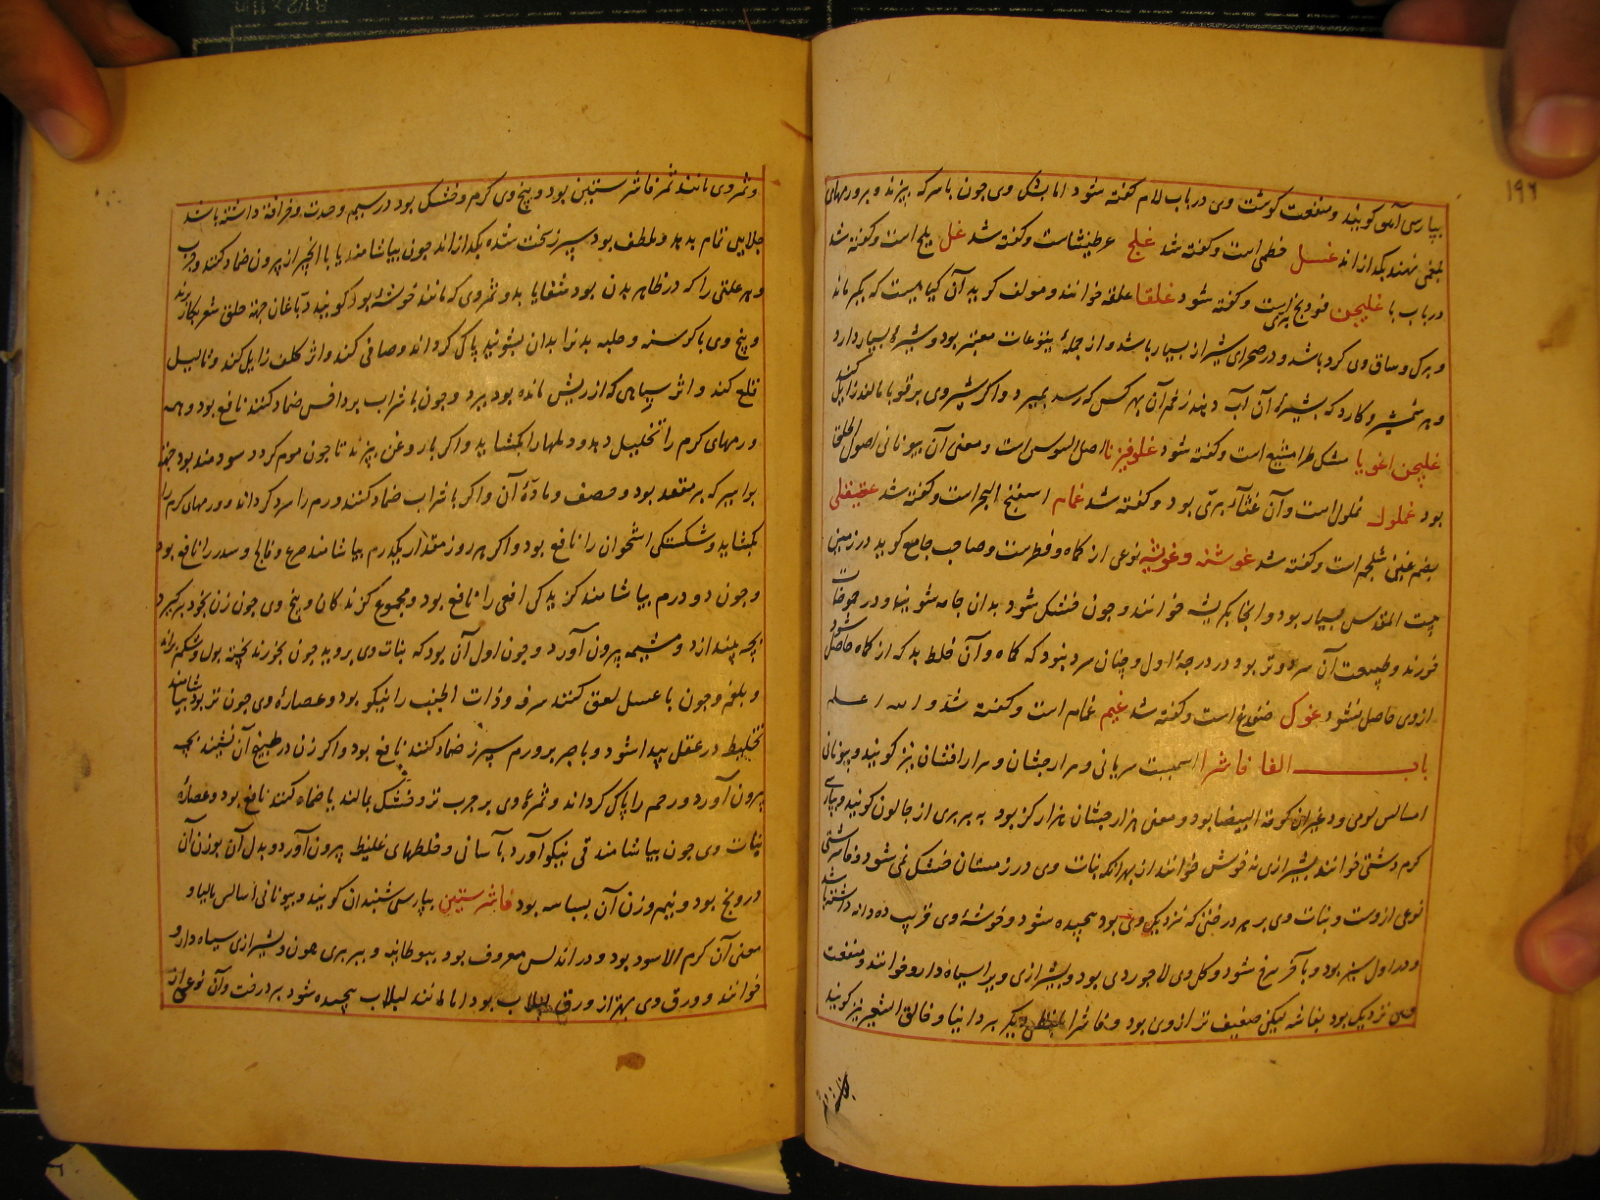 ۱۹۶
بپارسی آهو کویند و منفعت کوشت وی در باب لام کفته شود اما پشک وی چون با سرکه بپزند و بر ورمهای
بلغمی نهند بکدازاند غسل خطمی است و کفته شد غلج عرطنیثاست و کفته شد غل یلج است و کفته شد
در باب با غلیجن فودنج بری است و کفته شود غلقا علقه خوانند و مولف کوید آن کیاهیست که بکبر ماند
و برک و ساق وی کرد باشد و در صحرای شیراز بسیار باشد و از جمله یتوعات معتبر بود و شیره بسیار دارد
و هر شمشیر و کارد که بشیره آن آب دهند زخم آن بهر کس که رسد بمیرد و اکر شیر وی بر قوبا مالند زایل کند
غلیجن اغریا مشکطرامشیع است و کفته شود غلوفیزنا اصل السوس است و معنی آن بیونانی اصول الحلقا
بود غملول نملول است و آن قثاء بری بود و کفته شد غمام اسفنج البحر است و کفته شد عقیقلی
بضم غین شلجم است و کفته شد غوشنه وغوشه نوعی از کماه و فطرست و صاحب جامع کوید در زمین
بیت المقدس بسیار بود و انجا بکریشه خوانند و چون خشک شود بدان جامه شویند و در حموضات
خورند و طبیعت آن سرد و تر بود در درجهٔ اول و چنان سرد نبود که کماه و آن خلط بد که از کماه حاصل شود
از وی حاصل نشود غوک ضفدع است و کفته شد غیم غمام است و کفته شد و الله اعلم
باب الفا فاشرا اسمیست سریانی و هزارجشان و هزارافشان نیز کویند و بیونانی
امبالس لوقی و د غیرآن کرمة البیضا بود و معنی هزارجشان هزار کز بود به بربری ارجالون کویند و بپارسی
کرم دشتی خوانند بشیرازی نه خوش خوانند از بهر انکه نبات وی در زمستان خشک نمی شود و فاشرستین
نوعی ازوست و نبات وی بر هر درختی که نزدیک وی بود پیچیده شود و خوشهٔ وی قریب ده دانه داشته باشد
و در اول سبز بود و باخر سرخ شود و کل وی لاجوردی بود و بشیرازی ویرا سیاه دارو خوانند و منفعت
وی نزدیک بود بفاشرا لیکن ضعیف تر ازوی بود و فاشرا بلفظی دیکر بردانیا و فالق الشعیر نیز کویند
و ثمر وی مانند ثمر فاشرستین بود و بیخ وی کرم و خشک بود در سیم و حدت و حرافة داشته باشد
جلایی تمام بدهد و ملطف بود سپرز سخت شده بکدازاند چون بیاشامند یا با انجیر از بیرون ضماد کنند و جرب
و هر علتی را که در ظاهر بدن بود شفا یابد و ثمر وی که مانند خوشه بود کویند دباغان جهة حلق شعر بکار برند
و بیخ وی با کرسنه و حلبه بدترا بدان بشویند پاک کرداند و صافی کند و اثر کلف زایل کند و ثالیل
قلع کند و اثر سیاهی که از ریش مانده بود ببرد و چون با شراب بر داخس ضماد کنند نافع بود و همه
ورمهای کرم را تحلیل دهد و دملهارا بکشاید و اکر با روغن بپزند تا چون موم کردد سودمند بود جهة
بواسیر که بر مقعد بود و مصف و مادهٔ آن و اکر با شراب ضماد کنند ورم را سرد کرداند و ورمهای کرم را
بکشاید و شکستکی استخوان را نافع بود و اکر هر روز مقدار یکدرم بیاشامند صرع و فالج و سدر را نافع بود
و چون دو درم بیاشامند کزیدکی افعی را نافع بود و مجموع کزندکان و بیخ وی چون زن بخود برکیرد
بچه بیندازد و مشیمه بیرون آورد و چون اول آن بود که نبات وی بروید چون بخورند پخته بول و شکم براند
و بلغم و چون با عسل لعق کنند سرفه و ذات الجنب را نیکو بود و عصارهٔ وی چون تر بود بیاشامند
تخلیط در عقل پیدا شود و با جر بر ورم سپرز ضماد کنند نافع بود و اکر زن در طبیخ آن نشیند بچه
بیرون آورد و رحم را پاک کرداند و ثمرهٔ وی بر جرب تر و خشک بمالند یا ضماد کنند نافع بود و عصارهٔ
نبات وی چون بیاشامند قی نیکو آورد بآسانی و خلطهای غلیظ بیرون آورد و بدل آن بوزن آن
درونج بود و نیم وزن آن بسباسه بود فاشرستین بپارسی ششبندان کویند و بیونانی امبالس مالیا و
معنی آن کرم الاسود بود و در اندلس معروف بود ببوطانیه و ببربری میمون و بشیرازی سیاه دارو
خوانند و ورق وی بهتر از ورق لبلاب بود اما مانند لبلاب پیچیده شود بر درخت و آن نوعی از